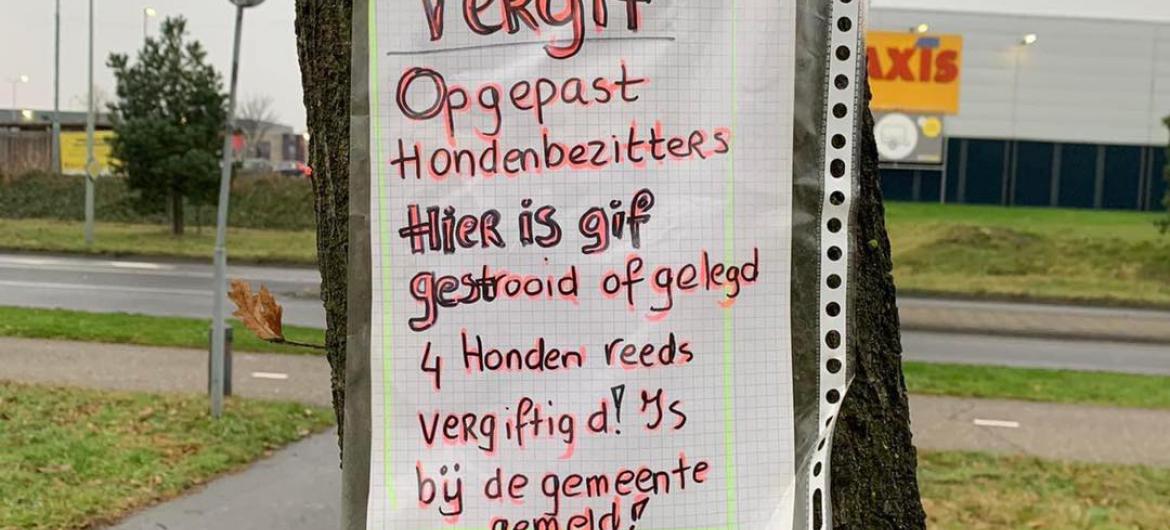 Vergif
Opgepast
Hondenbezitters
Hier is gif
gestrooid of gelegd
4 Honden reeds
vergiftigd! Is
bij de gemeente
gemeld!
AXIS